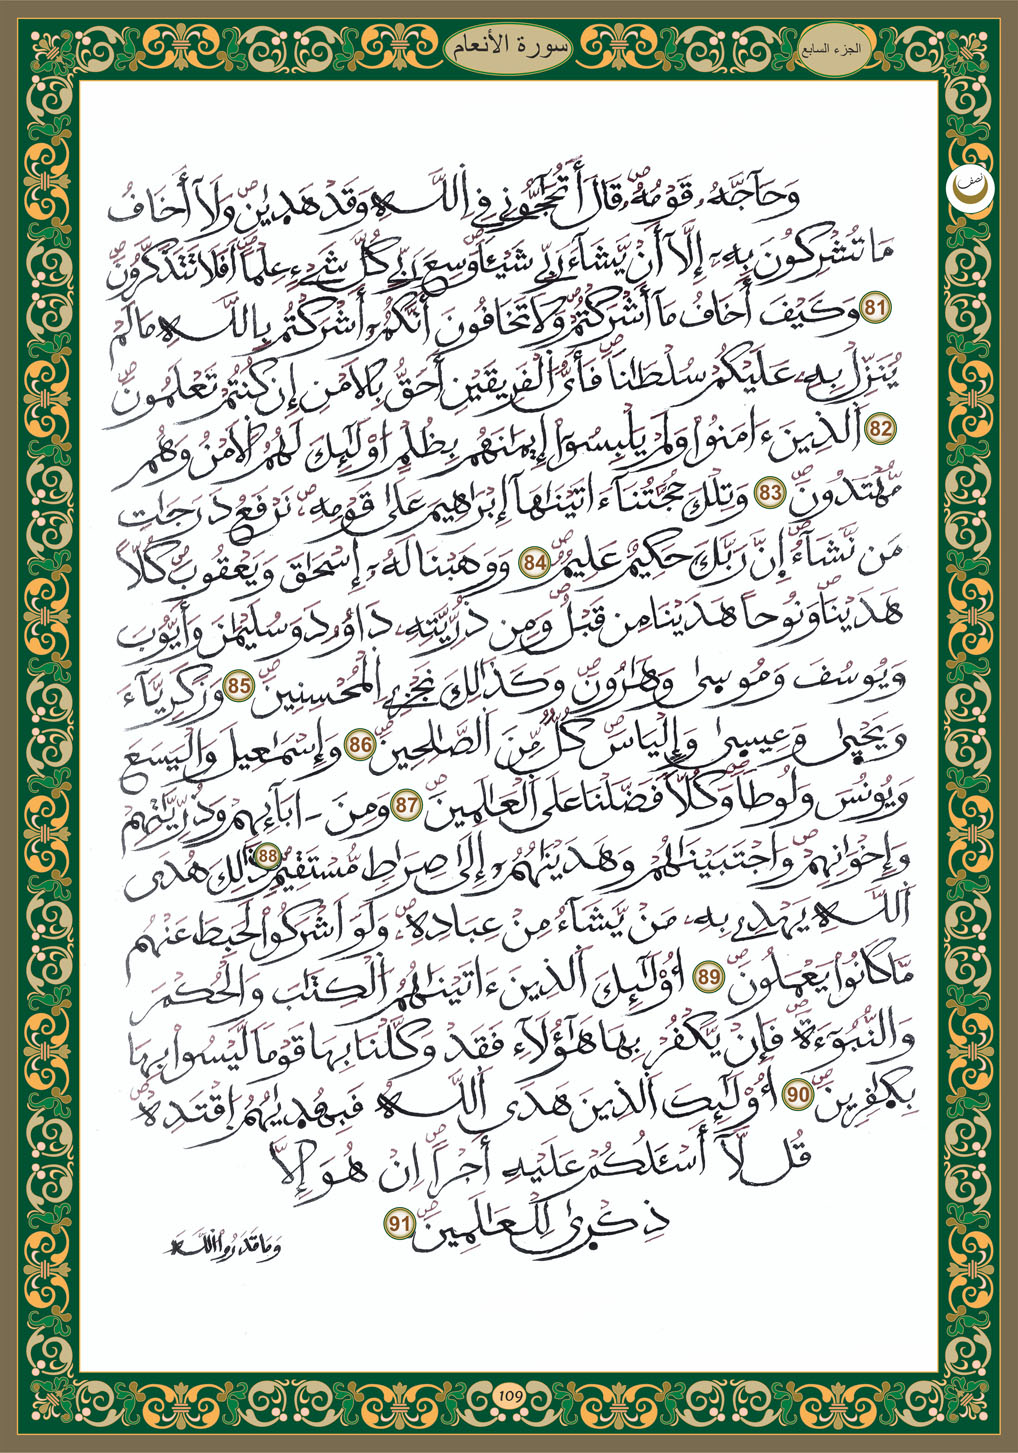 سورة الأنعام
الجزء السابع
نصف
وَحَآجَّهُۥ قَوْمُهُۥۖ قَالَ أَتُحَٰٓجُّونِے فِے اِ۬للَّهِ وَقَدْ هَدٜيٰنِۖ وَلَآ أَخَافُ
مَا تُشْرِكُونَ بِهِۦٓ إِلَّآ أَنْ يَّشَآءَ رَبِّے شَيْـٔاٗۖ وَسِعَ رَبِّے كُلَّ شَےْءٍ عِلْماًۖ اَفَلَا تَتَذَكَّرُونَۖ
81 وَكَيْفَ أَخَافُ مَآ أَشْرَكْتُمْ وَلَا تَخَافُونَ أَنَّكُمُۥٓ أَشْرَكْتُم بِاللَّهِ مَا لَمْ
يُنَزِّلْ بِهِۦ عَلَيْكُمْ سُلْطَٰناٗۖ فَأَيُّ اُ۬لْفَرِيقَيْنِ أَحَقُّ بِالَامْنِۖ إِن كُنتُمْ تَعْلَمُونَۖ
82 اَ۬لذِينَ ءَامَنُواْ وَلَمْ يَلْبِسُوٓاْ إِيمَٰنَهُم بِظُلْمٍ اُوْلَٰٓئِكَ لَهُمُ اُ۬لَامْنُ وَهُم
مُّهْتَدُونَۖ 83 وَتِلْكَ حُجَّتُنَآ ءَاتَيْنَٰهَآ إِبْرَٰهِيمَ عَلَىٰ قَوْمِهِۦۖ نَرْفَعُ دَرَجَٰتِ
مَن نَّشَآءُۖ اِنَّ رَبَّكَ حَكِيمٌ عَلِيمٞۖ 84 وَوَهَبْنَا لَهُۥٓ إِسْحَٰقَ وَيَعْقُوبَۖ كُلّاً
هَدَيْنَاۖ وَنُوحاً هَدَيْنَا مِن قَبْلُۖ وَمِن ذُرِّيَّتِهِۦ دَاوُۥدَ وَسُلَيْمَٰنَ وَأَيُّوبَ
وَيُوسُفَ وَمُوسٜىٰ وَهَٰرُونَۖ وَكَذَٰلِكَ نَجْزِے اِ۬لْمُحْسِنِينَۖ 85 وَزَكَرِيَّآءَ
وَيَحْيٜىٰ وَعِيسٜىٰ وَإِلْيَاسَۖ كُلّٞ مِّنَ اَ۬لصَّٰلِحِينَۖ 86 وَإِسْمَٰعِيلَ وَالْيَسَعَ
وَيُونُسَ وَلُوطاٗۖ وَكُلّاٗ فَضَّلْنَا عَلَى اَ۬لْعَٰلَمِينَۖ 87 وَمِنَ اٰبَآئِهِمْ وَذُرِّيَّٰتِهِمْ
وَإِخْوَٰنِهِمْۖ وَاجْتَبَيْنَٰهُمْ وَهَدَيْنَٰهُمُۥٓ إِلَىٰ صِرَٰطٖ مُّسْتَقِيمٖۖ 88 ذَٰلِكَ هُدَى
اَ۬للَّهِ يَهْدِے بِهِۦ مَنْ يَّشَآءُ مِنْ عِبَادِهِۦۖ وَلَوَ اَشْرَكُواْ لَحَبِطَ عَنْهُم
مَّا كَانُواْ يَعْمَلُونَۖ 89 أُوْلَٰٓئِكَ اَ۬لذِينَ ءَاتَيْنَٰهُمُ اُ۬لْكِتَٰبَ وَالْحُكْمَ
وَالنُّبُوٓءَةَۖ فَإِنْ يَّكْفُرْ بِهَا هَٰٓؤُلَآءِ فَقَدْ وَكَّلْنَا بِهَا قَوْماٗ لَّيْسُواْ بِهَا
بِكٰٜفِرِينَۖ 90 أُوْلَٰٓئِكَ اَ۬لذِينَ هَدَى اَ۬للَّهُ فَبِهُدٜيٰهُمُ اُ۪قْتَدِهْۖ
قُل لَّآ أَسْـَٔلُكُمْ عَلَيْهِ أَجْراًۖ اِنْ هُوَ إِلَّا
ذِكْرٜىٰ لِلْعَٰلَمِينَۖ 91
وَمَا قَدَرُواْ اُ۬للَّهَ
109